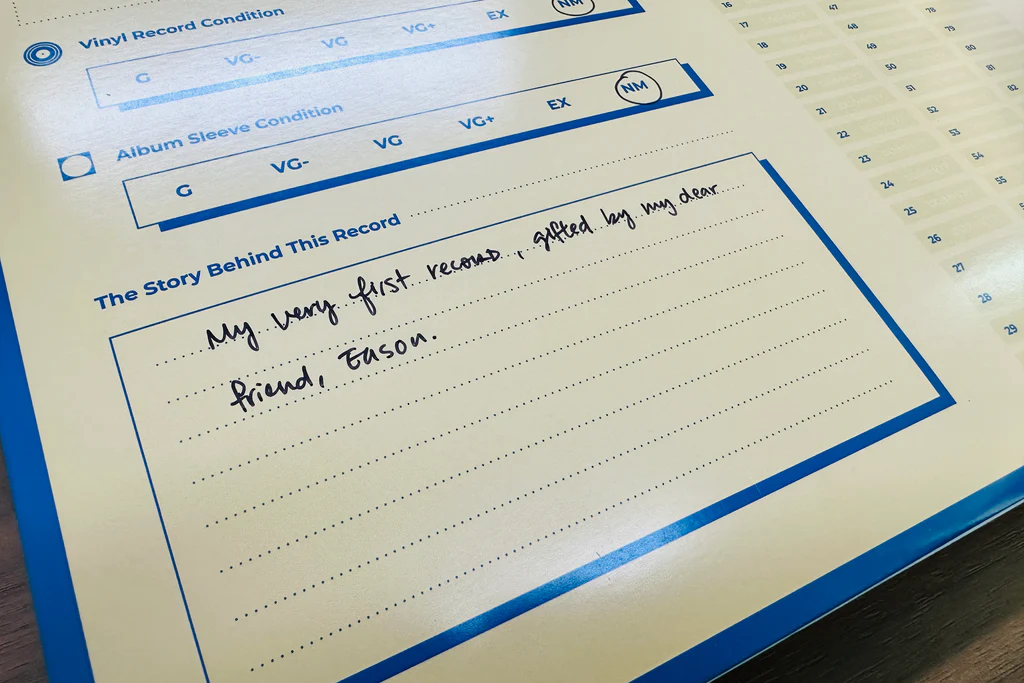 Vinyl Record Condition
G VG- VG VG+ EX NM
Album Sleeve Condition
G VG- VG VG+ EX NM
The Story Behind This Record
My very first record, gifted by my dear
friend, Eason.
16 47 78
17 48 79
18 49 80
19 50 81
20 51 82
21 52
22 53
23 54
24 55
25
26
27
28
29